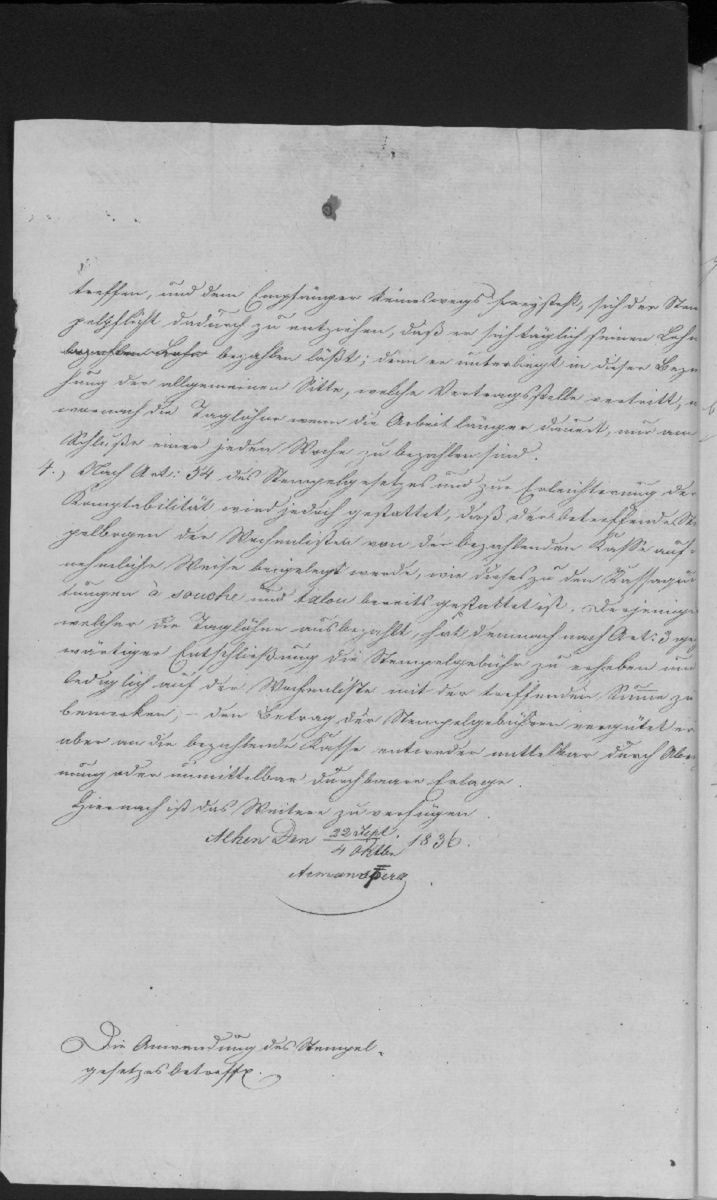 treffen, und dem Empfänger keineswegs freysteht, sich der Stem
pelpflicht dadurch zu entziehen, daß er sich täglich seinen Lohn
bezahlen läßt; denn er unterliegt in dieser Bezie
hung der allgemeinen Sitte, welche Vertragsstelle vertritt,
wornach die Taglöhne wenn die Arbeit länger dauert, nur am
Schluße einer jeden Woche zu bezahlen sind.
4., Nach Art: 54 des Stempelgesetzes und zur Erleichterung der
Komptabilität wird jedoch gestattet, daß der betreffende Ste
pelbogen der Wochenlisten von der bezahlenden Kasse auf
nehmliche Weise beygelegt werde, wie dieses zu den Kassaquit
tungen à souche und talon bereits gestattet ist. Derjenige
welcher die Taglöhne ausbezahlt, hat demnach nach Art: 3 gegen
wärtiger Entschließung die Stempelgebühr zu erheben und
lediglich auf der Wochenliste mit der treffenden Summe zu
bemerken; – den Betrag der Stempelgebühren vergütet er
aber an die bezahlende Kasse entweder mittelbar durch Abrech
nung oder unmittelbar durch baare Erlage.
Hiernach ist das Weitere zu verfügen.
Athen Den 22 Sept / 4 Oktbr 1836.
Armansperg
Die Anwendung des Stempel-
gesetzes betreff.